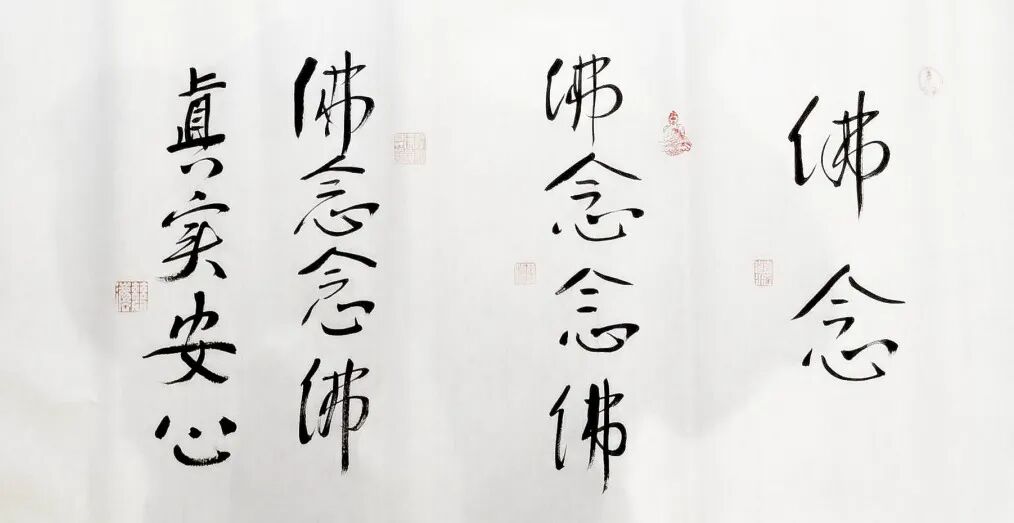 佛念
佛念念佛
佛念念佛
眞实安心